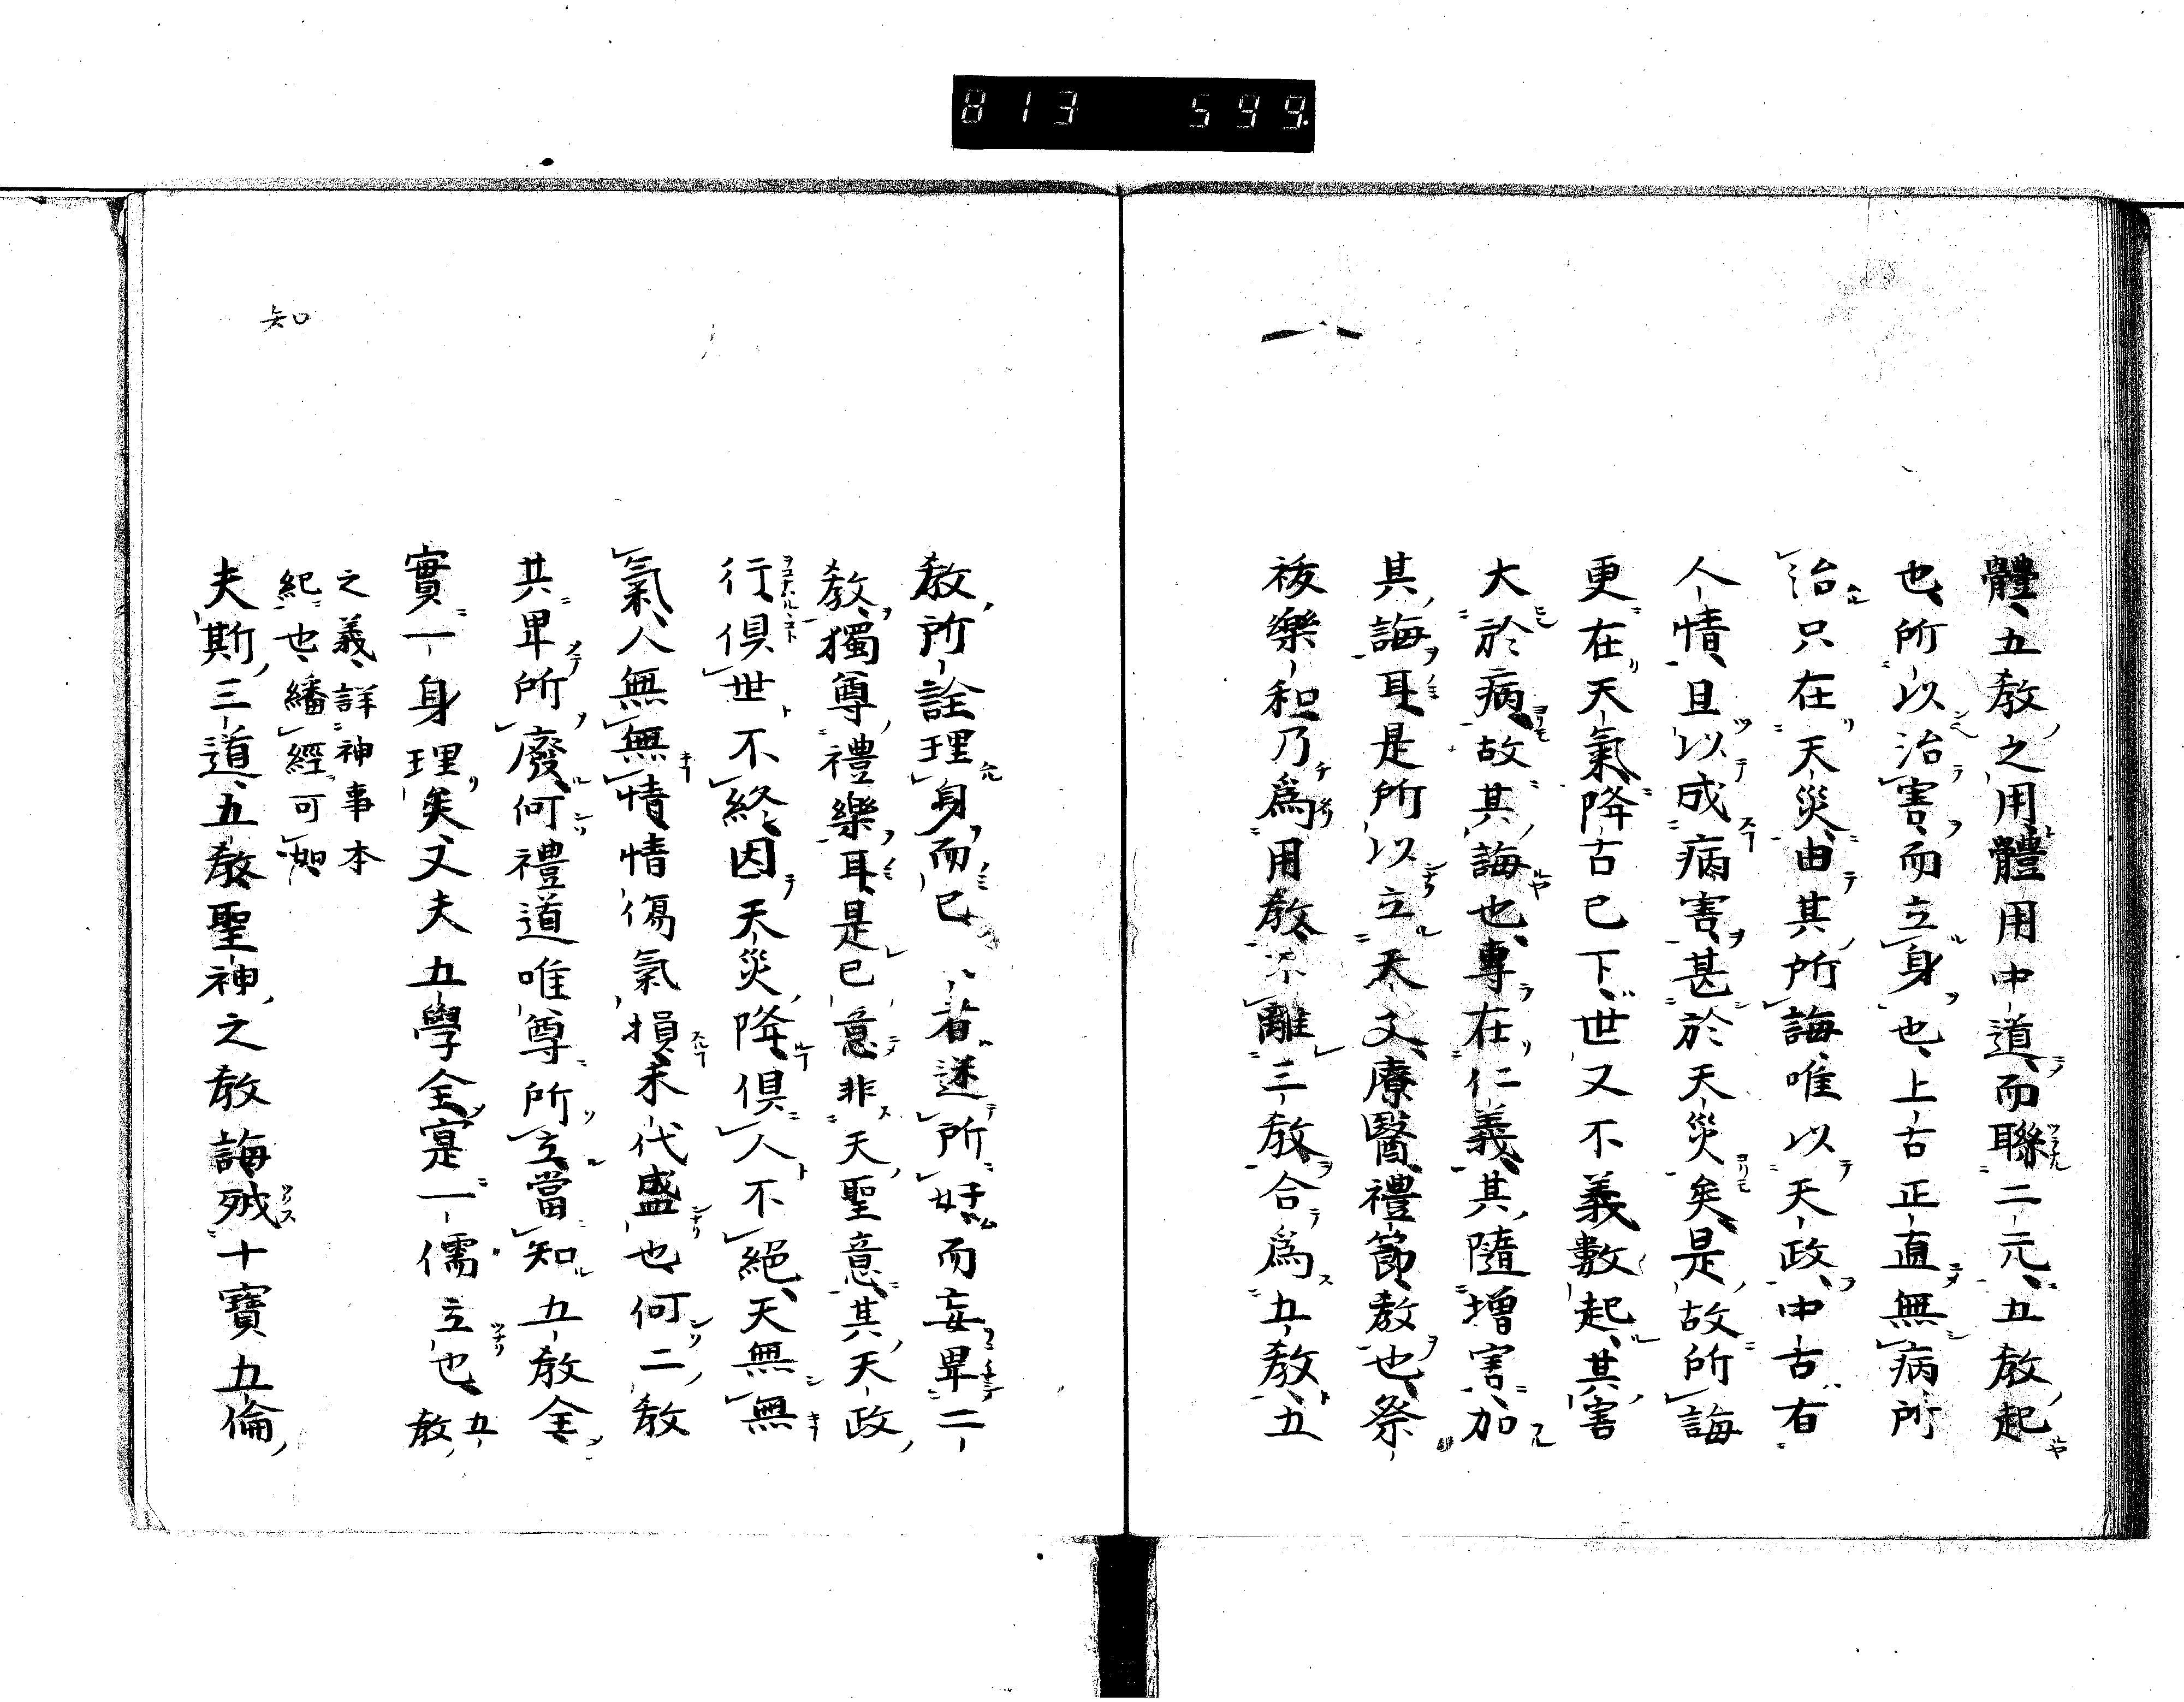 813 599.
體五教之用體用中道而聯二元五教起
也所以治害而立身也上古正直無病所
治只在天災由其所誨唯以天政中古有
人情且以成病害甚於天災矣是故所誨
更在天氣降古已下世又不義數起其害
大於病故其誨也專在仁義其隨增害加
其誨耳是所以立天文療醫禮節教也祭
祓樂和乃為用教不離三教合為五教五
教所詮理身而已者迷所好而妄卑二
教獨尊禮樂耳是已意非天聖意其天政
行俱世不終因天災降俱人不絕天無無
氣人無無情情傷氣損末代盛也何二教
共卑所廢何禮道唯尊所立當知五教全
實一身理矣又夫五學全寔一儒立也五教
之義詳神事本
紀也繙經可知
夫斯三道五教聖神之教誨殘十寶五倫
知